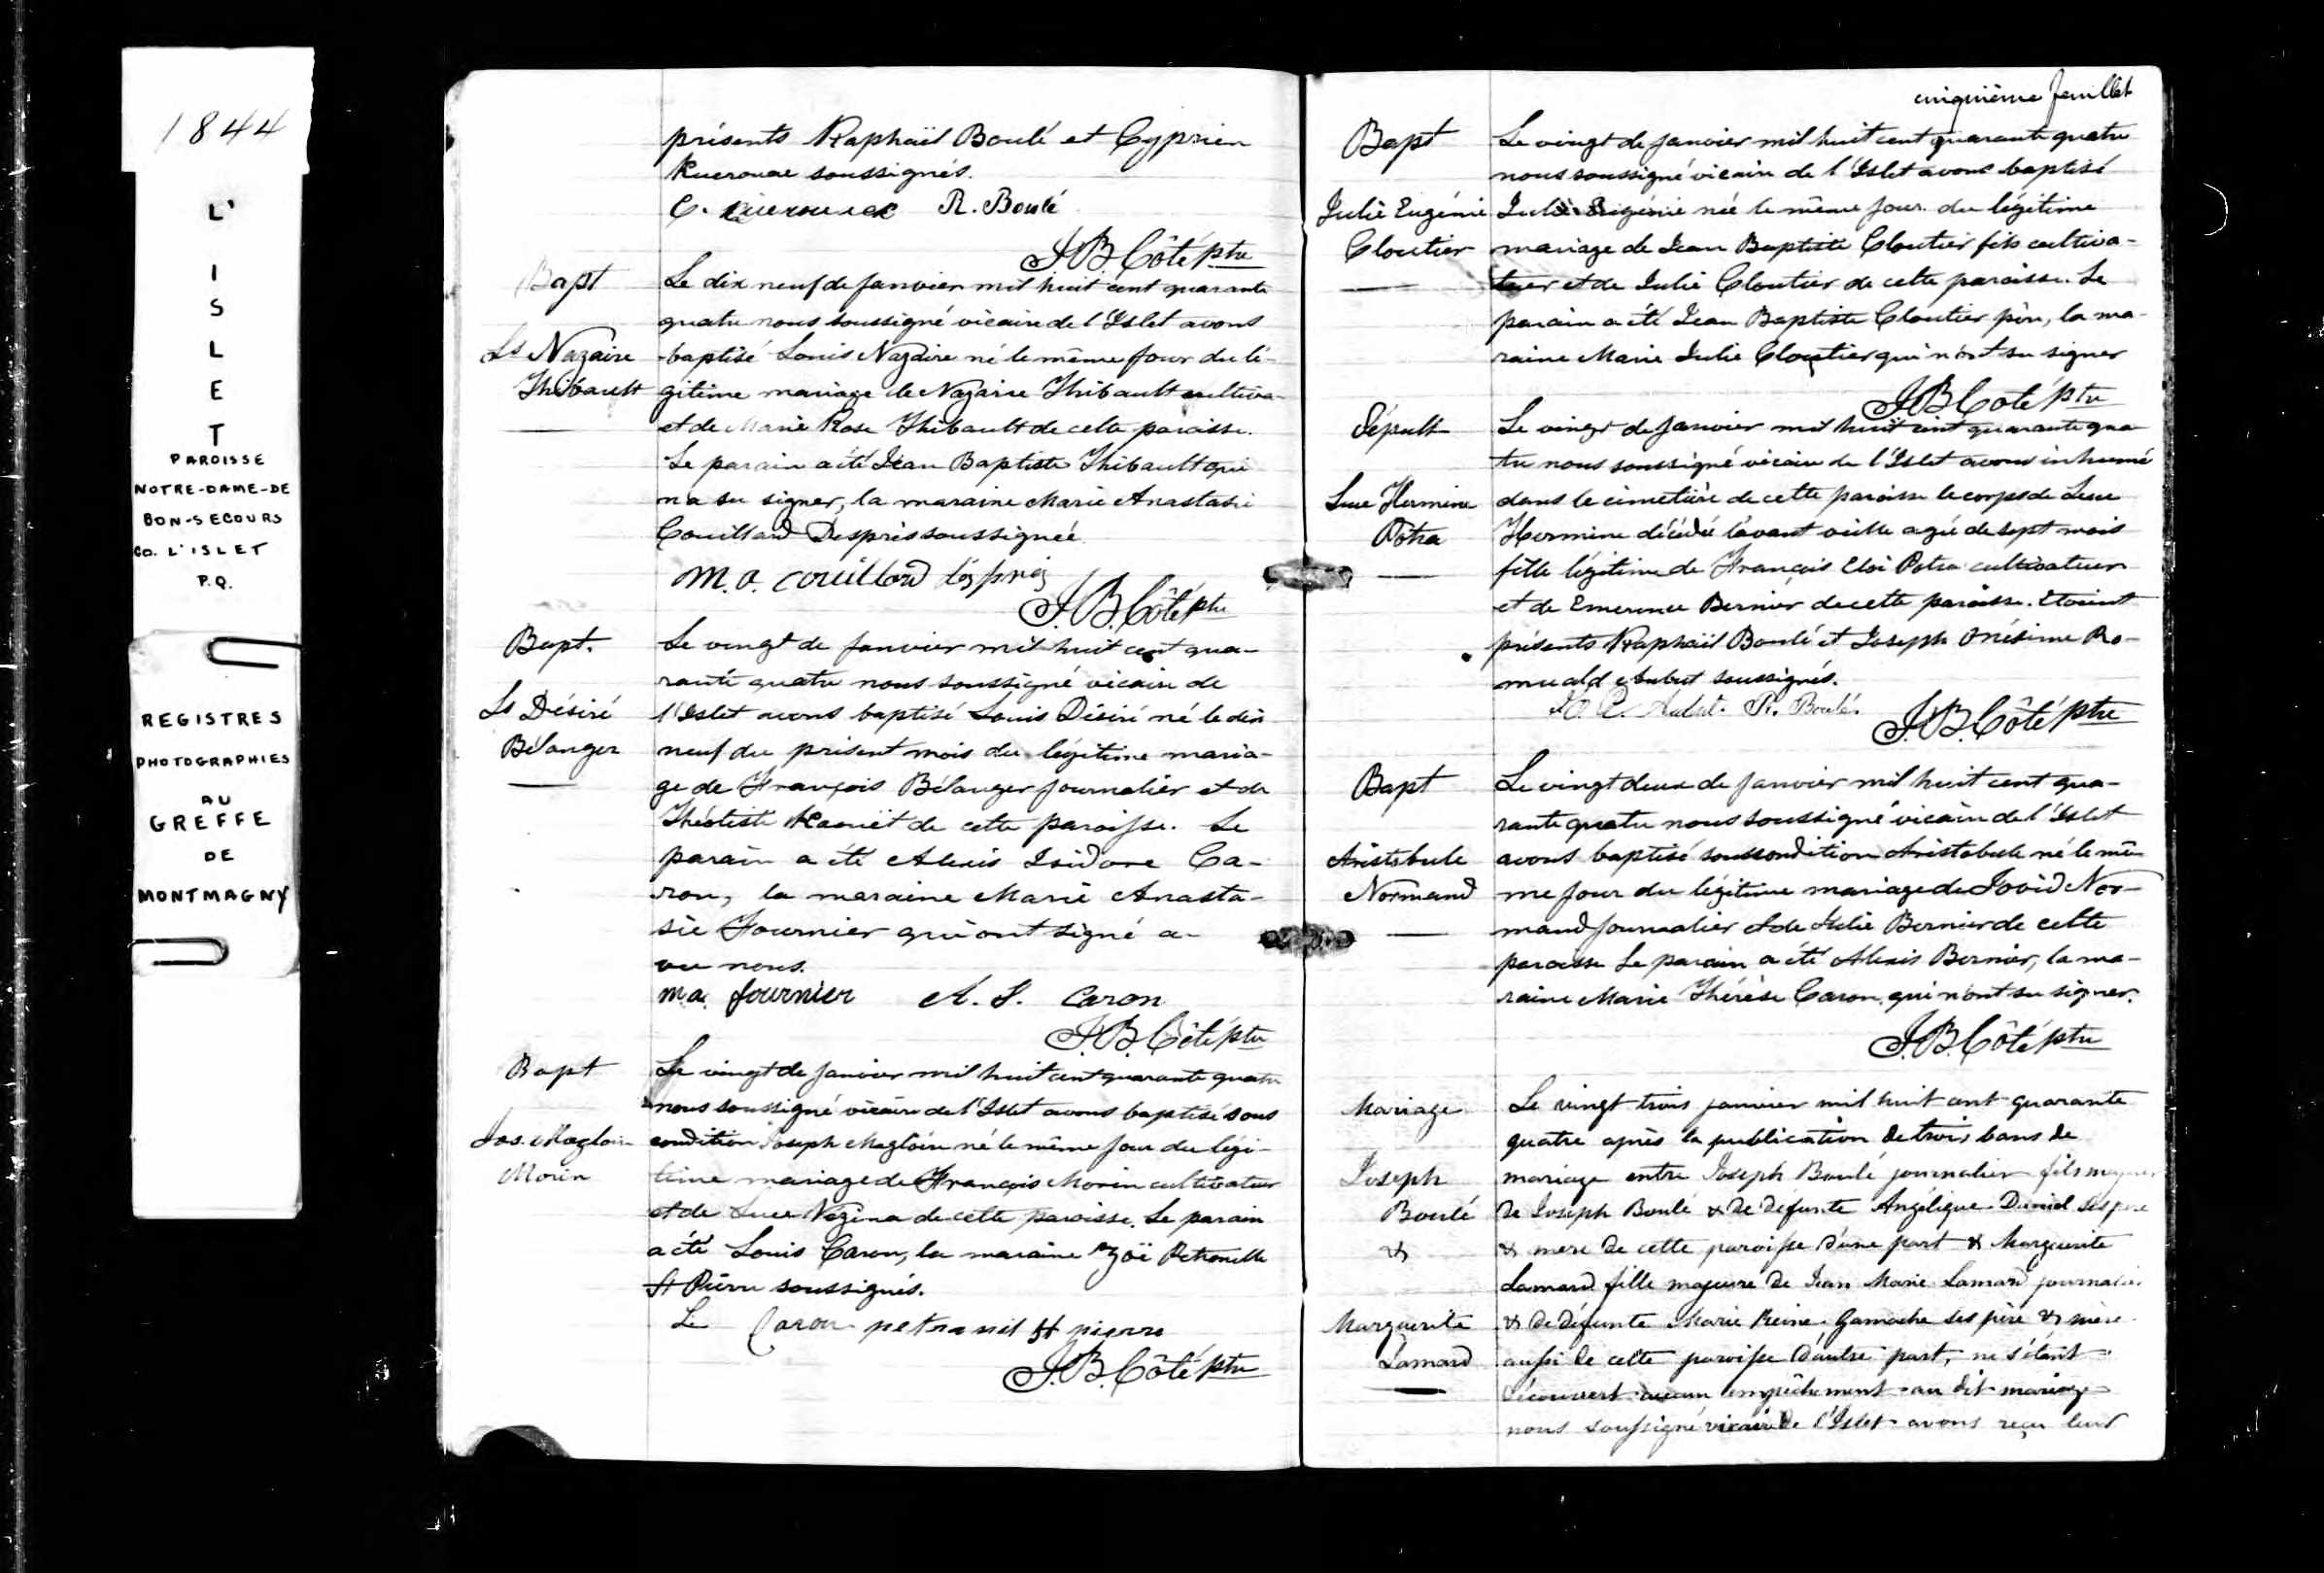 1844
L'
I
S
L
E
T
PAROISSE
NOTRE-DAME-DE
BON-SECOURS
CO. L'ISLET
P.Q.
REGISTRES
PHOTOGRAPHIES
AU
GREFFE
DE
MONTMAGNY
présents Raphaël Boulé et Cyprien
Kuerouac soussignés.
C. Kuerouack R. Boulé
J.B. Côté ptre
Bapt
Ls Nazaire
Thibault
Le dix neuf de janvier mil huit cent quarante
quatre nous soussigné vicaire de l'Islet avons
baptisé Louis Nazaire né le même jour du lé-
gitime mariage de Nazaire Thibault cultiva-
et de Marie Rose Thibault de cette paroisse.
Le parain a été Jean Baptiste Thibault qui
n'a su signer, la maraine Marie Anastasie
Couillard Després soussignée
M. A. couillard déspres
J.B. Côté ptre
Bapt.
Ls Désiré
Bélanger
Le vingt de janvier mil huit cent qua-
rante quatre nous soussigné vicaire de
l'Islet avons baptisé Louis Désiré né le dix
neuf du présent mois du légitime maria-
ge de François Bélanger journalier et de
Théotiste de cette paroisse. Le
parain a été Alexis Isidore Ca-
ron, la maraine Marie Anasta-
sie Fournier qui ont signé a-
vec nous.
m.a. fournier A. I. Caron
J.B. Côté ptre
Bapt
Jos. Magloire
Morin
Le vingt de janvier mil huit cent quarante quatre
nous soussigné vicaire de l'Islet avons baptisé sous
condition Joseph Magloire né le même jour du légi-
time mariage de François Morin cultivateur
et de Luce Vezina de cette paroisse. Le parain
a été Louis Caron, la maraine Zoë Petronille
St Pierre soussignés.
L. Caron petronil St pierre
J.B. Côté ptre
cinquième feuillet
Bapt
Julie Eugénie
Cloutier
Le vingt de janvier mil huit cent quarante quatre
nous soussigné vicaire de l'Islet avons baptisé
Julie Eugénie née le même jour du légitime
mariage de Jean Baptiste Cloutier fils cultiva-
teur et de Julie Cloutier de cette paroisse. Le
parain a été Jean Baptiste Cloutier père, la ma-
raine Marie Julie Cloutier qui n'ont su signer
J.B. Côté ptre
Sépult
Luce Hermine
Potra
Le vingt de janvier mil huit cent quarante qua
tre nous soussigné vicaire de l'Islet avons inhumé
dans le cimetière de cette paroisse le corps de Luce
Hermine décédée l'avant veille agée de sept mois
fille légitime de François Eloi Potra cultivateur
et de Emerence Bernier de cette paroisse. Etoient
présents Raphaël Boulé et Joseph Onésime Ro-
muald soussignés.
R. Boulé. J.B. Côté ptre
Bapt
Aristobule
Normand
Le vingt deux de janvier mil huit cent qua-
rante quatre nous soussigné vicaire de l'Islet
avons baptisé sous condition Aristobule né le mê-
me jour du légitime mariage de Jovid Nor-
mand journalier et de Julie Bernier de cette
paroisse Le parain a été Alexis Bernier, la ma-
raine Marie Thérèse Caron qui n'ont su signer.
J.B. Côté ptre
Mariage
Joseph
Boulé
&
Marguerite
Lamard
Le vingt trois janvier mil huit cent quarante
quatre après la publication de trois bans de
mariage entre Joseph Boulé journalier fils majeur
de Joseph Boulé & de defunte Angélique ses père
& mere de cette paroisse d'une part & Marguerite
Lamard fille majeure de Jean Marie Lamard journalier
& de défunte Marie Reine Gamache ses père & mère
aussi de cette paroisse d'autre part, ne s'étant
découvert aucun empêchement au dit mariage
nous soussigné vicaire de l'Islet avons reçu leur